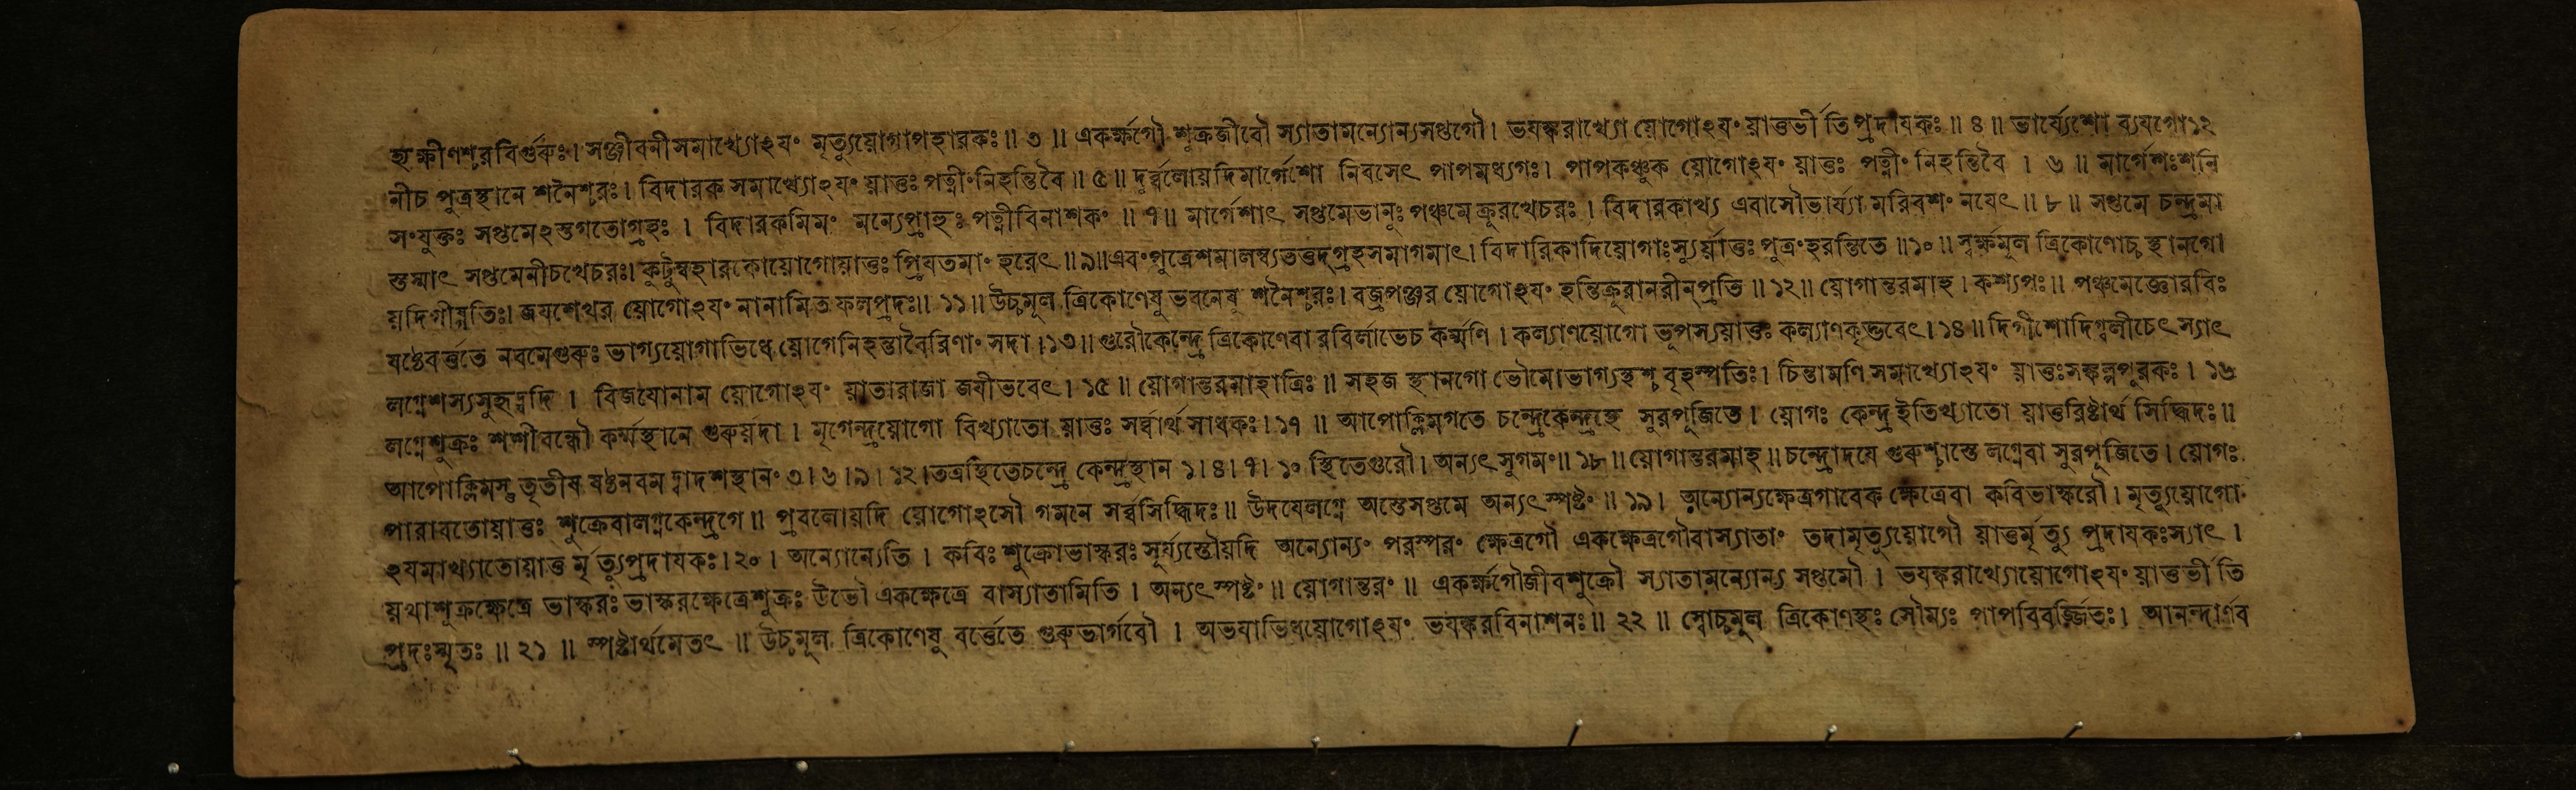 হ্যক্ষীণশ্চরবির্গুরুঃ। সঞ্জীবনীসমাখ্যোঽযং মৃত্যুযোগাপহারকঃ॥ ৩ ॥ একর্ক্ষগৌ শুক্রজীবৌ স্যাতামন্যোন্যসপ্তগৌ। ভযঙ্করাখ্যো যোগোঽযং যাত্তর্ভীতিপ্রদাযকঃ॥ ৪॥ ভার্য্যেশো ব্যযগো১২
নীচ পুত্রস্থানে শনৈশ্চরঃ। বিদারক সমাখ্যোঽযং যাত্তঃ পত্নীংনিহন্তিবৈ॥ ৫॥ দুর্ব্বলোযদিমার্গেশো নিবসেৎ পাপমধ্যগঃ। পাপকঞ্চুক যোগোঽযং যাত্তঃ পত্নীং নিহন্তিবৈ । ৬ ॥ মার্গেশঃশনি
সংযুক্তঃ সপ্তমেঽস্তগতোগ্রহঃ । বিদারকমিমং মন্যেপ্রাহুঃ পত্নীবিনাশকং ॥ ৭॥ মার্গেশাৎ সপ্তমেভানুঃ পঞ্চমে ক্রূরখেচরঃ । বিদারকাখ্য এবাসৌভার্য্যা মরিবশং নযেৎ॥ ৮॥ সপ্তমে চন্দ্রমা
স্তস্মাৎ সপ্তমেনীচখেচরঃ। কুটুম্বহারকোযোগোযাত্তঃ প্রিযতমাং হরেৎ॥ ৯॥এবংপুত্রেশমালম্ব্যতত্তদ্গ্রহসমাগমাৎ। বিদারিকাদিযোগাঃস্যুর্যাত্তঃ পুত্রংহরন্তিতে ॥১০॥ স্বর্ক্ষমূল ত্রিকোণোচ্চ স্থানগো
যদিগীষ্পতিঃ। জযশেখর যোগোঽযং নানামিত ফলপ্রদঃ॥ ১১॥ উচ্চমূল ত্রিকোণেষু ভবনেষু শনৈশ্চরঃ। বজ্রপঞ্জর যোগোঽযং হন্তিক্রূরানরীন্প্রতি ॥ ১২॥ যোগান্তরমাহ। কশ্যপঃ॥ পঞ্চমেজ্ঞোরবিঃ
ষষ্ঠেবর্ত্ততে নবমেগুরুঃ ভাগ্যযোগাভিধে যোগেনিহন্তাবৈরিণাং সদা ।১৩॥ গুরৌকেন্দ্রে ত্রিকোণেবা রবির্লাভেচ কর্ম্মণি । কল্যাণযোগো ভূপস্যযাত্তঃ কল্যাণকৃদ্ভবেৎ। ১৪॥ দিগীশোদিগ্বলীচেৎ স্যাৎ
লগ্নেশস্যসুহৃদ্যদি । বিজযোনাম যোগোঽযং যাতারাজা জযীভবেৎ। ১৫ ॥ যোগান্তরমাহাত্রিঃ॥ সহজ স্থানগো ভৌমোভাগ্যস্থশ্চ বৃহস্পতিঃ। চিন্তামণি সমাখ্যোঽযং যাত্তঃসঙ্কল্পপূরকঃ । ১৬
লগ্নেশুক্রঃ শশীবন্ধৌ কর্ম্মস্থানে গুরুর্যদা । মৃগেন্দ্রযোগো বিখ্যাতো যাত্তঃ সর্ব্বার্থ সাধকঃ।১৭ ॥ আপোক্লিমগতে চন্দ্রেকেন্দ্রস্থে সুরপূজিতে । যোগঃ কেন্দ্রইতিখ্যাতো যাত্তরিষ্টার্থ সিদ্ধিদঃ॥
আপোক্লিমস্তু তৃতীয ষষ্ঠনবম দ্বাদশস্থানং ৩। ৬। ৯। ১২।তত্রস্থিতেচন্দ্রে কেন্দ্রস্থান ১। ৪। ৭। ১০ স্থিতেগুরৌ। অন্যৎ সুগমং॥ ১৮॥ যোগান্তরমাহ॥ চন্দ্রোদযে গুরুশ্চাস্তে লগ্নেবা সুরপূজিতে। যোগঃ
পারাবতোযাত্তঃ শুক্রেবালগ্নকেন্দ্রগে॥ প্রবলোযদি যোগোঽসৌ গমনে সর্ব্বসিদ্ধিদঃ॥ উদযেলগ্নে অস্তেসপ্তমে অন্যৎ স্পষ্টং ॥ ১৯। অন্যোন্যক্ষেত্রগাবেক ক্ষেত্রেবা কবিভাস্করৌ। মৃত্যুযোগো
ঽযমাখ্যাতোযাত্ত র্মৃত্যুপ্রদাযকঃ।২০। অন্যোন্যেতি । কবিঃ শুক্রোভাস্করঃ সূর্য্যস্তৌযদি অন্যোন্যং পরস্পরং ক্ষেত্রগৌ একক্ষেত্রগৌবাস্যাতাং তদামৃত্যুযোগৌ যাত্তর্মৃত্যু প্রদাযকঃস্যাৎ ।
যথাশুক্রক্ষেত্রে ভাস্করঃ ভাস্করক্ষেত্রেশুক্রঃ উভৌ একক্ষেত্রে বাস্যাতামিতি । অন্যৎ স্পষ্টং॥ যোগান্তরং ॥ একর্ক্ষগৌজীবশুক্রৌ স্যাতামন্যোন্য সপ্তমৌ । ভযঙ্করাখ্যোযোগোঽযং যাত্তর্ভীতি
প্রদঃস্মৃতঃ ॥ ২১ ॥ স্পষ্টার্থমেতৎ ॥ উচ্চমূল ত্রিকোণেষু বর্ত্তেতে গুরুভার্গবৌ । অভযাভিধযোগোঽযং ভযঙ্করবিনাশনঃ॥ ২২ ॥ স্বোচ্চমূল ত্রিকোণস্থঃ সৌম্যঃ পাপবিবর্জ্জিতঃ। আনন্দার্ণব